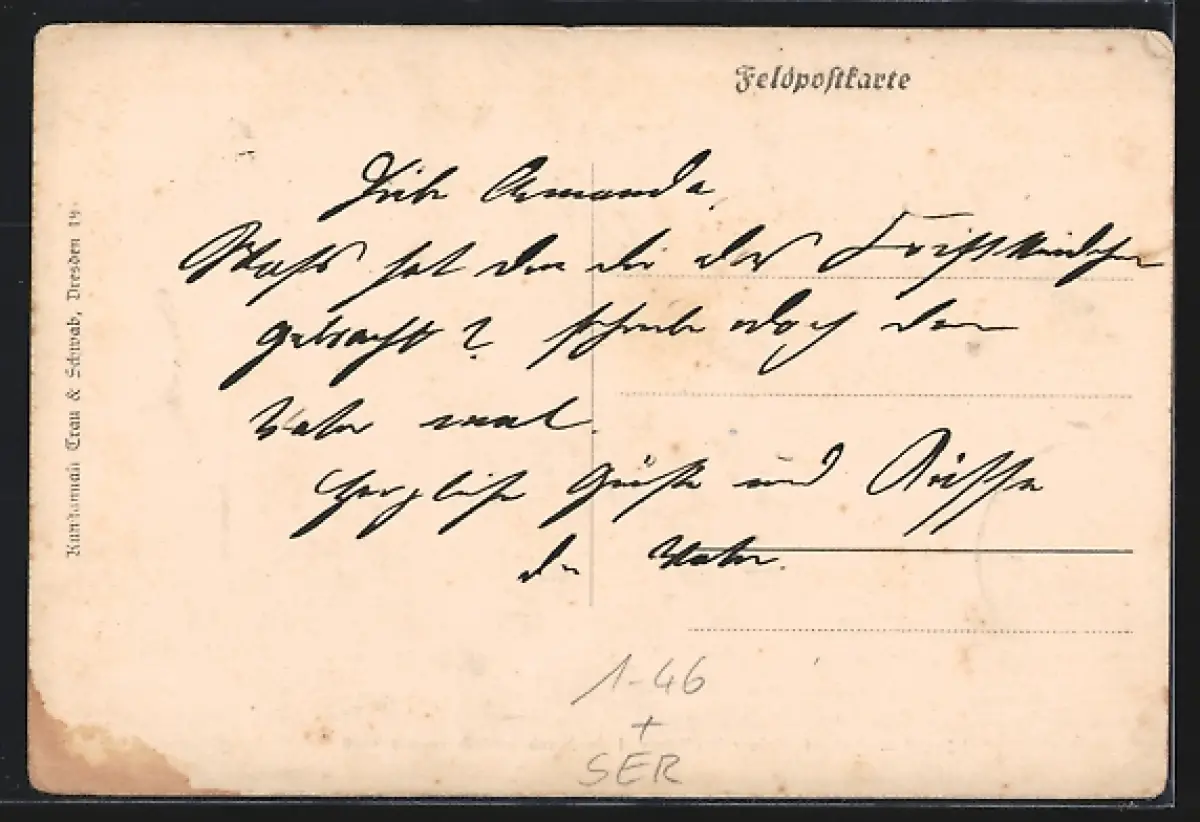 Feldpostkarte
Liebe Amanda,
Was hat den dir das Christkindchen
gebracht? schreibe doch dem
Vater mal.
Herzliche Grüße und Küsse
dein Vater.
Kunstanstalt Trau & Schwab, Dresden 19
1-46
+
SER